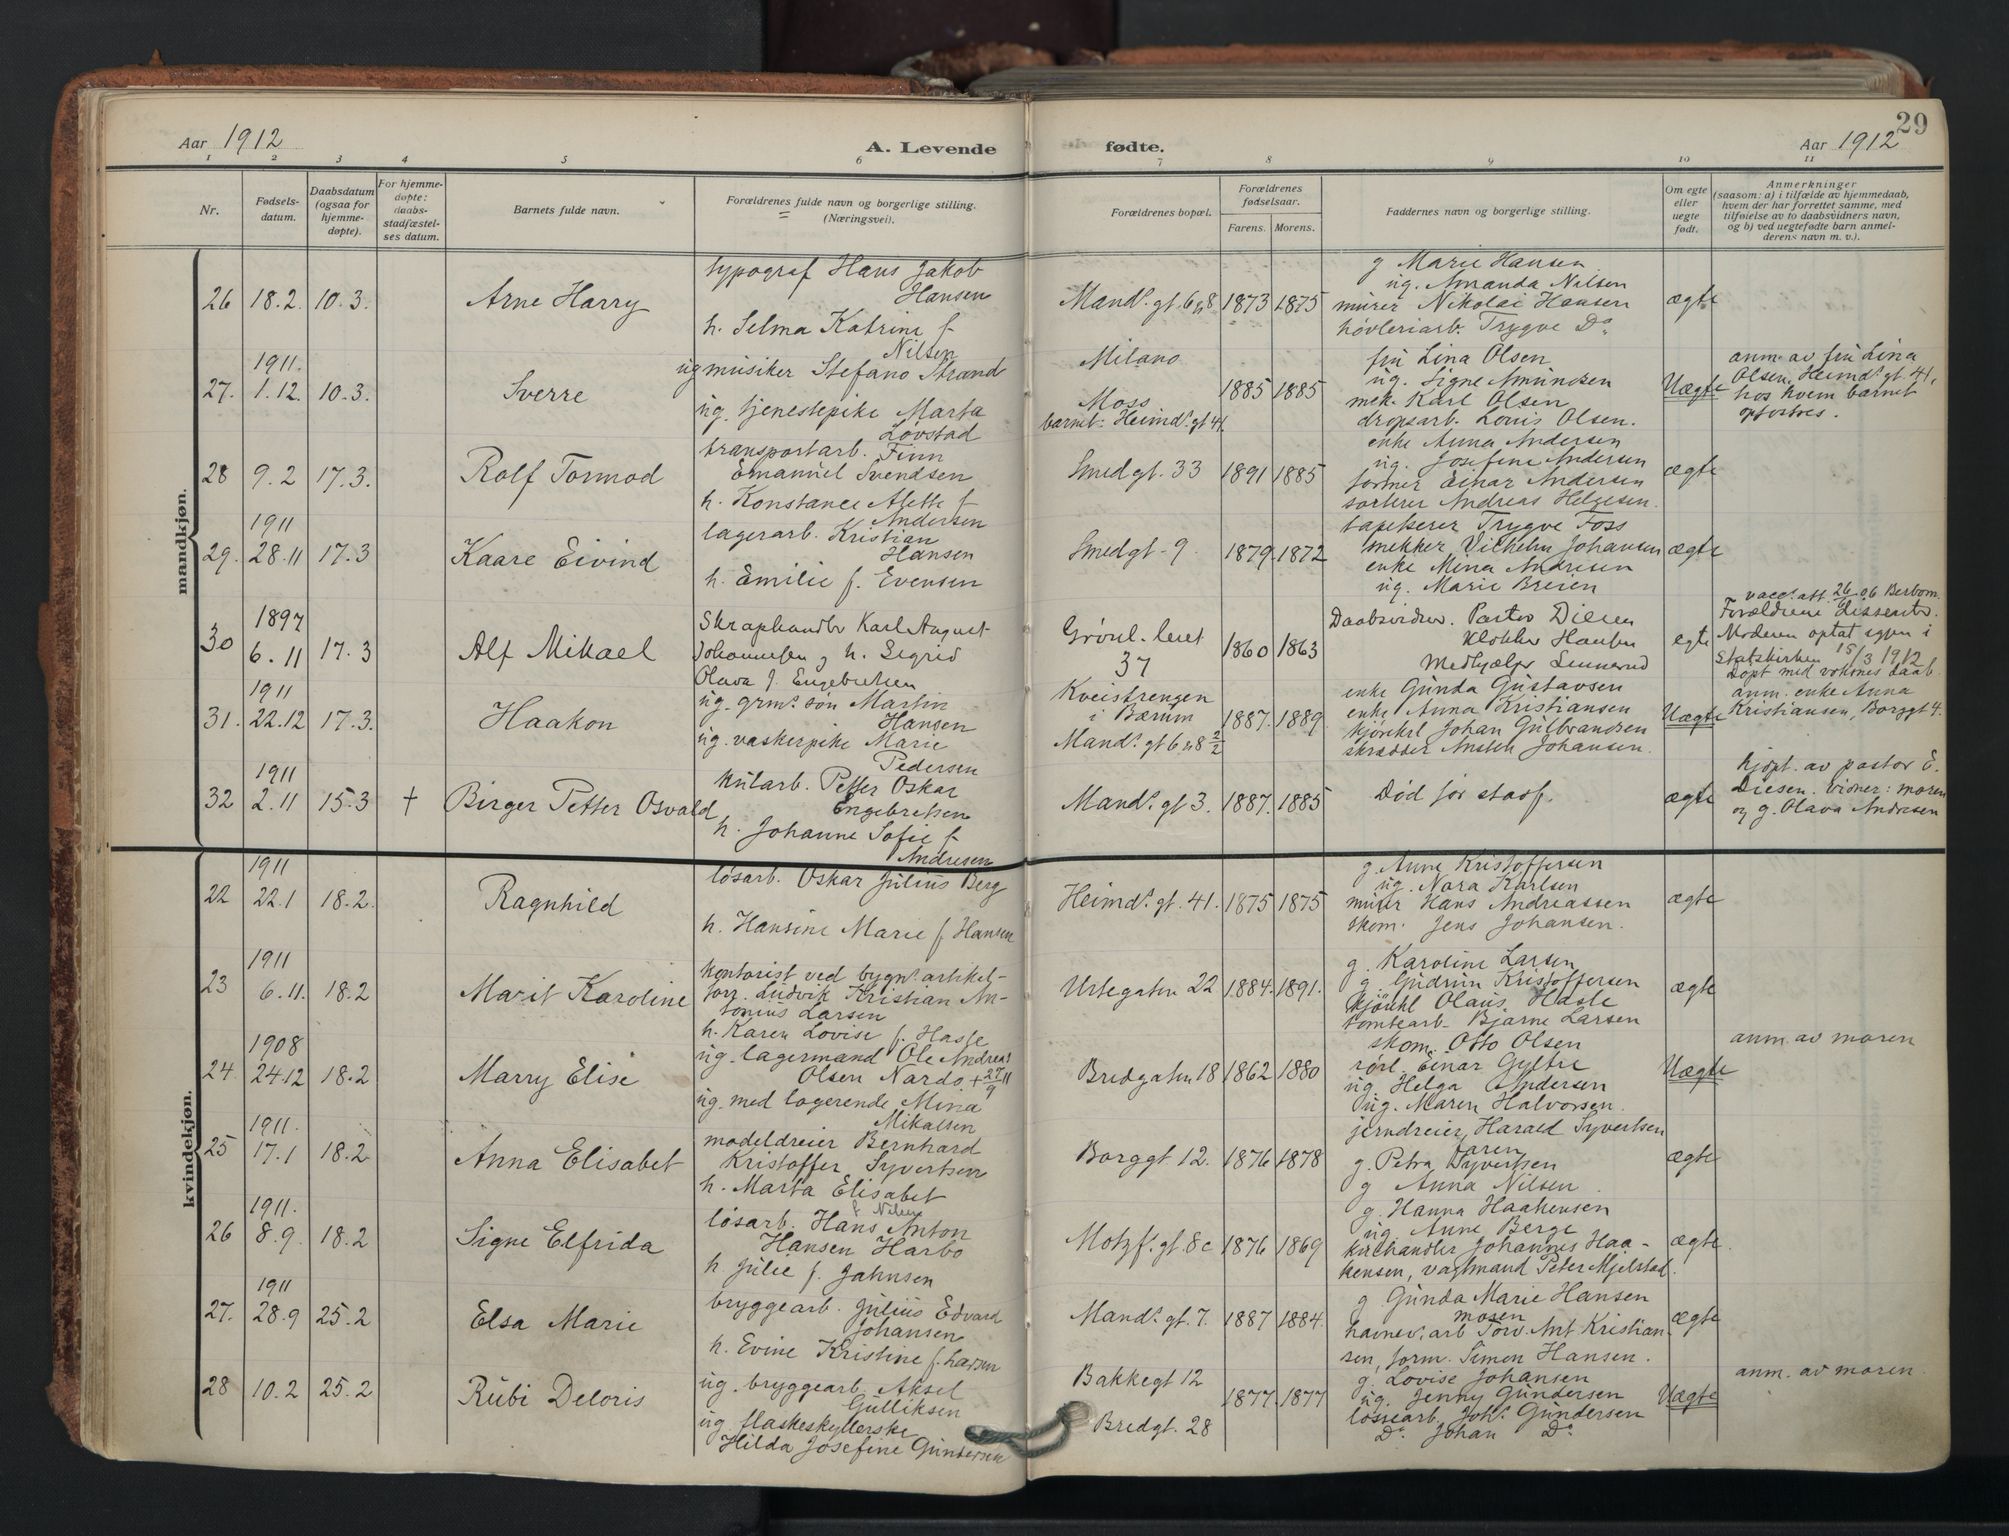 29
Aar 1912
A. Levende fødte.
Aar 1912
1 2 3 4 5 6 7 8 9 10 11
Nr.
Fødsels-
datum.
Daabsdatum
(ogsaa for
hjemme-
døpte).
For hjemme-
døpte:
daabs-
stadfæstel-
ses datum.
Barnets fulde navn.
Forældrenes fulde navn og borgerlige stilling.
(Næringsvei).
Forældrenes bopæl.
Forældrenes
fødselsaar.
Farens. Morens.
Faddernes navn og borgerlige stilling.
Om egte
eller
uegte
født.
Anmerkninger
(saasom: a) i tilfælde av hjemmedaab,
hvem der har forrettet samme, med
tilføielse av to daabsvidners navn,
og b) ved uegtefødte barn anmel-
derens navn m. v.).
mandkjøn.
26 18.2 10.3. Arne Harry
typograf Hans Jakob
Hansen
h. Selma Katrine f.
Nilsen
Mand. gt. 6 & 8 1873 1875
g. Marie Hansen
ug. Amanda Nilsen
murer Nikolai Hansen
høvleriarb. Trygve Do
ægte
1911.
27. 1.12. 10.3. Sverre
ug musiker Stefano Strand
ug. tjenestepike Marta
Løvstad
Milano
Moss
barnet: Heimd. gt 41.
1885 1885
fru Lina Olsen
ug. Signe Amundsen
mek. Karl Olsen
dropsarb. Louis Olsen.
Uægte
anm. av fru Lina
Olsen, Heimd. gt. 41,
hos hvem barnet
opfostres.
28 9.2 17.3. Rolf Tormod
transportarb. Finn
Emanuel Svendsen
h. Konstance Alette f.
Andersen
Smedgt. 33 1891 1885
enke Anna Andersen
ug. Josefine Andersen
former Einar Andersen
sorterer Andreas Helgesen.
ægte
1911
29. 28.11 17.3 Kaare Eivind
lagerarb. Kristian
Hansen
h. Emilie f. Evensen
Smedgt. 9 1879. 1872
tapetserer Trygve Foss
mekker Vilhelm Johansen
enke Mina Andresen
ug. Marie Breien
ægte
1897
30 6.11 17.3 Alf Mikael
Skraphandler Karl August
Johannesen og h. Sigrid
Olava f. Engebretsen
Grønl. leret
37
1860 1863
Daabsvidner. Pastor Diesen
Klokker Hauben
Medhjælper Linnerud
egte
vacc. att. 26/6 06 Berbom.
Forældrene dissenter.
Moderen optat igjen i
Statskirken 15/3 1912
Døpt med voksnes daab.
1911
31. 22.12 17.3. Haakon
ug. grm. søn Martin
Hansen
ug. vaskerpike Marie
Pedersen
Kveistrengen
i Bærum
Mand. gt 6 & 8 2/2
1887. 1889
enke Gunda Gustavsen
enke Anna Kristiansen
kjørekl. Johan Gulbrandsen
skrædder Ansten Johansen.
Uægte
anm. enke Anna
Kristiansen, Borggt 4.
1911
32 2.11 15.3 † Birger Petter Osvald
kularb. Petter Oskar
Engebretsen
h. Johanne Sofie f.
Andresen
Mand. gt 3. 1887. 1885
Død før stadf.
ægte
hjdpt. av pastor E.
Diesen. vidner: moren
og g. Olava Andresen
kvindekjøn.
1911
22 22.1 18.2. Ragnhild
løsarb. Oskar Julius Berg
h. Hansine Marie f. Hansen
Heimd. gt. 41. 1875 1875
g. Anne Kristoffersen
ug. Nora Karlsen
murer Hans Andreassen
skom. Jens Johansen.
ægte
1911
23 6.11. 18.2 Marit Karoline
kontorist ved bygn. artikel-
forr. Ludvik Kristian An-
tonius Larsen
h. Karen Lovise f. Hasle
Urtegaten 22 1884. 1891.
g. Karoline Larsen
g. Gudrun Kristoffersen
kjørekl Olaus Hasle
tomtearb. Bjarne Larsen
ægte
1908
24. 24.12 18.2 Marry Elise
ug. lagermand Ole Andreas
Olsen Nardo, + 27/9 11
ug. med logerende Mina
Mikalsen
Bredgaten 18 1862 1880
skom. Otto Olsen
rørl. Einar Gyltre
ug. Helga Andersen
ug. Maren Halvorsen.
Uægte
anm. av moren
1911.
25 17.1 18.2 Anna Elisabet
modeldreier Bernhard
Kristoffer Syvertsen
h. Marta Elisabet
f. Nilsen
Borggt 12. 1876 1878
jerndreier Harald Syvertsen
g. Petra Syvertsen
g Anna Nilsen
ægte
1911.
26 8.9. 18.2 Signe Elfrida
løsarb. Hans Anton
Hansen Harbo
h. Julie f. Jahnsen
Motzf. gt. 8c 1876 1869
g. Hanna Haakensen
ug. Anne Berge
Johannes Haa-
kensen, vagtmand Peter Mjelstad.
ægte
1911
27. 28.9 25.2 Elsa Marie
bryggearb. Julius Edvard
Johansen
h. Evine Kristine f. Larsen
Mand. gt. 7. 1887 1884.
g Gunda Marie Hansen
havnev. arb Torv. Ant Kristian-
sen, form. Simen Hansen.
ægte
28 10.2 25.2 Rubi Deloris
ug. bryggearb. Aksel
Gulliksen
ug. flaskeskyllerske
Hilda Josefine Gundersen
Bakkegt 12
Bredgt. 28
1877. 1877
g. Lovise Johansen
ug. Jenny Gundersen
løssearb. Johs. Gundersen
Do Johan Do
Uægte
anm. av moren